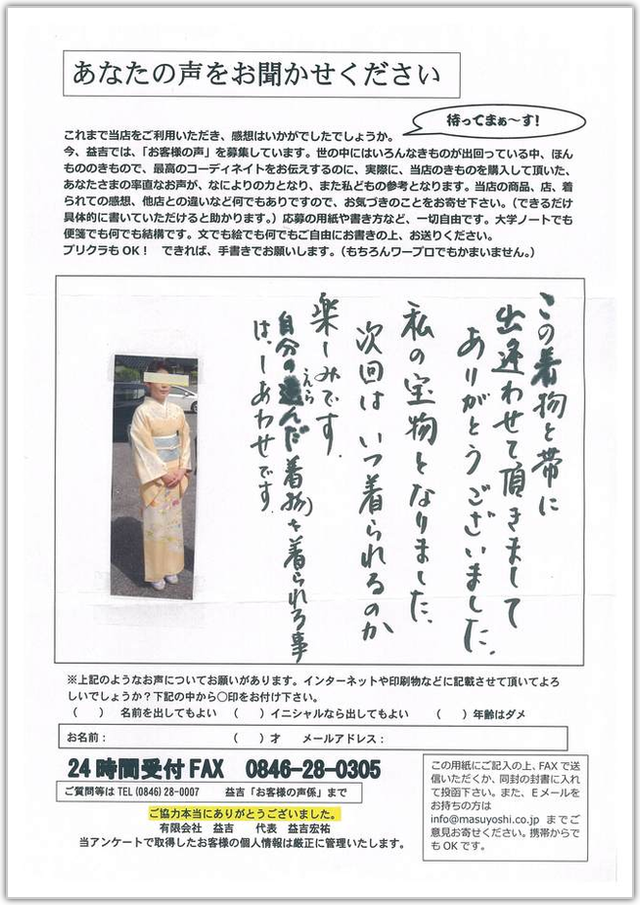 あなたの声をお聞かせください
待ってまぁ～す!
これまで当店をご利用いただき、感想はいかがでしたでしょうか。
今、益吉では、「お客様の声」を募集しています。世の中にはいろんなきものが出回っている中、ほん
もののきもので、最高のコーディネイトをお伝えするのに、実際に、当店のきものを購入して頂いた、
あなたさまの率直なお声が、なによりの力となり、また私どもの参考となります。当店の商品、店、着
られての感想、他店との違いなど何でもありですので、お気づきのことをお寄せ下さい。（できるだけ
具体的に書いていただけると助かります。）応募の用紙や書き方など、一切自由です。大学ノートでも
便箋でも何でも結構です。文でも絵でも何でもご自由にお書きの上、お送りください。
プリクラもOK！　できれば、手書きでお願いします。（もちろんワープロでもかまいません。）
この着物と帯に
出逢わせて頂きまして
ありがとうございました。
私の宝物となりました、
次回は いつ着られるのか
楽しみです。
自分の選んだ着物を着られる事
えら
は、しあわせです。
※上記のようなお声についてお願いがあります。インターネットや印刷物などに記載させて頂いてよろ
しいでしょうか？下記の中から○印をお付け下さい。
（　）　名前を出してもよい　（　）イニシャルなら出してもよい　（　）年齢はダメ
お名前：　（　）才　メールアドレス：
24時間受付FAX　0846-28-0305
ご質問等は TEL(0846)28-0007　益吉「お客様の声係」まで
ご協力本当にありがとうございました。
有限会社　益吉　代表　益吉宏祐
当アンケートで取得したお客様の個人情報は厳正に管理いたします。
この用紙にご記入の上、FAXで送
信いただくか、同封の封書に入れ
て投函下さい。また、Eメールを
お持ちの方は
info@masuyoshi.co.jp までご
意見お寄せください。携帯からで
もOKです。